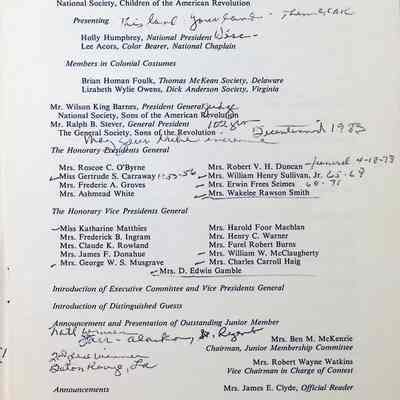 National Society, Children of the American Revolution
Presenting This land your land -
Holly Humphrey, National President
Lee Acors, Color Bearer, National Chaplain
Members in Colonial Costumes
Brian Homan Foulk, Thomas McKean Society, Delaware
Lizabeth Wylie Owens, Dick Anderson Society, Virginia
Mr. Wilson King Barnes, President General Judge
National Society, Sons of the American Revolution
Mr. Ralph B. Stever, General President
The General Society, Sons of the Revolution - Bicentennial 1983
May your
The Honorary Presidents General
Mrs. Roscoe C. O'Byrne
Miss Gertrude S. Carraway 1953-56
Mrs. Frederic A. Groves
Mrs. Ashmead White
Mrs. Robert V. H. Duncan - funeral 4-18-78
Mrs. William Henry Sullivan, Jr. 65-68
Mrs. Erwin Frees Seimes 68-71
Mrs. Wakelee Rawson Smith
The Honorary Vice Presidents General
Miss Katharine Matthies
Mrs. Frederick B. Ingram
Mrs. Claude K. Rowland
Mrs. James F. Donahue
Mrs. George W. S. Musgrave
Mrs. Harold Foor Machlan
Mrs. Henry C. Warner
Mrs. Furel Robert Burns
Mrs. William W. McClaugherty
Mrs. Charles Carroll Haig
Mrs. D. Edwin Gamble
Introduction of Executive Committee and Vice Presidents General
Introduction of Distinguished Guests
Announcement and Presentation of Outstanding Junior Member
Natl Winner
St. Regent
Mrs. Ben M. McKenzie
Chairman, Junior Membership Committee
winner
Baton Rouge, La
Mrs. Robert Wayne Watkins
Vice Chairman in Charge of Contest
Announcements
Mrs. James E. Clyde, Official Reader